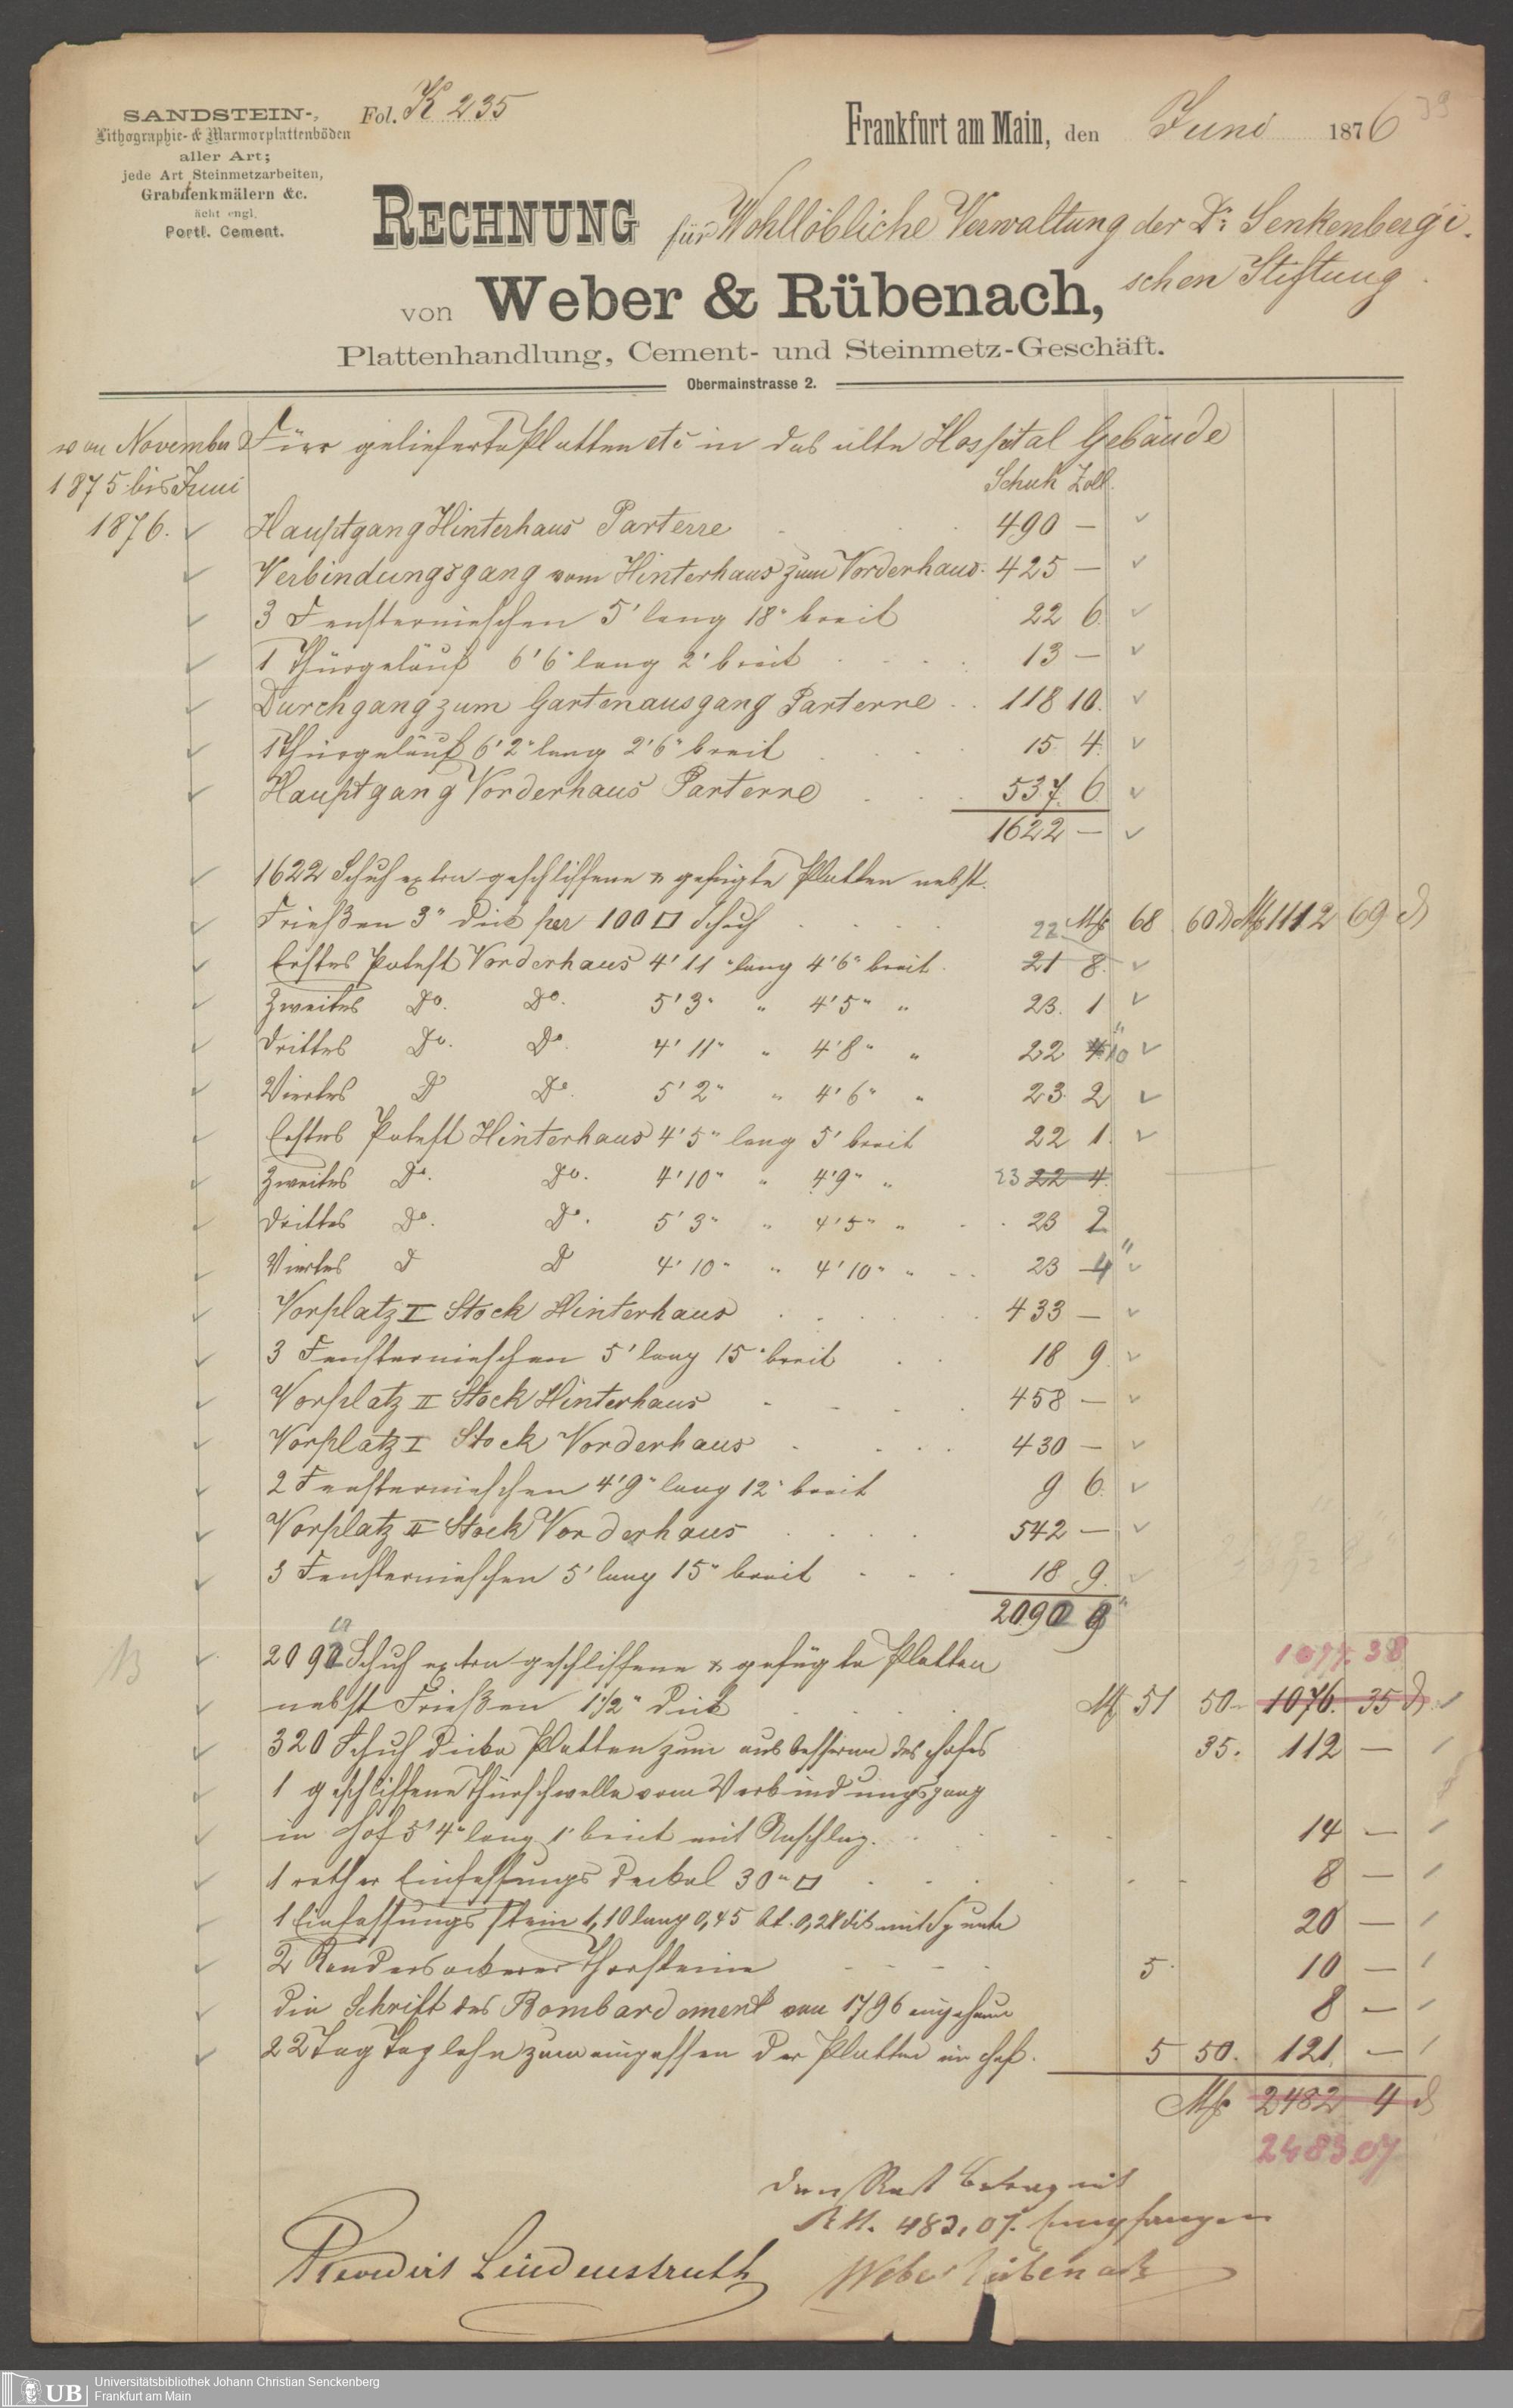 SANDSTEIN-,
Lithographie- & Marmorplattenböden
aller Art;
jede Art Steinmetzarbeiten,
Grabdenkmälern &c.
ächt engl.
Portl. Cement.
Fol. K 235
Frankfurt am Main, den Juni 1876
39
RECHNUNG für Wohllöbliche Verwaltung der Dr: Senkenberg'i-
schen Stiftung.
von Weber & Rübenach,
Plattenhandlung, Cement- und Steinmetz-Geschäft.
Obermainstrasse 2.
von November
1875 bis Juni
1876.
Für gelieferte Platten etc in das alte Hospital Gebäude
Schuh Zoll.
Hauptgang Hinterhaus Parterre 490 —
Verbindungsgang vom Hinterhaus zum Vorderhaus. 425 —
3 Fensternieschen 5' lang 18" breit 22 6.
1 Thürgeläuf 6' 6" lang 2' breit 13 —
Durchgang zum Gartenausgang Parterre 118 10.
1 Thürgeläuf 6' 2" lang 2' 6" breit 15 4.
Hauptgang Vorderhaus Parterre 537. 6.
1622 —
1622 Schuh extra geschliffene & gefügte Platten nebst.
Frießen 3" dick per 100 □ Schuh Mk 68 60 Mk 1112 69
22
Erstes Potest Vorderhaus 4' 11" lang 4' 6" breit. 21 8.
Zweites Do. Do. 5' 3" " 4' 5" " 23. 1
Drittes Do. Do. 4' 11" " 4' 8" " 22 10
Viertes Do Do. 5' 2" " 4' 6" " 23. 2
Erstes Potest Hinterhaus 4' 5" lang 5' breit 22 1.
Zweites Do. Do. 4' 10" " 4' 9" " 23 22 4.
Drittes Do. Do. 5' 3" " 4' 5" " 23 2
Viertes Do Do 4' 10" " 4' 10" " 23 4"
Vorplatz I Stock Hinterhaus 433 —
3 Fensternieschen 5' lang 15" breit 18 9.
Vorplatz II Stock Hinterhaus 458 —
Vorplatz I Stock Vorderhaus 430 —
2 Fensternieschen 4' 9" lang 12" breit 9 6.
Vorplatz II Stock Vorderhaus 542 —
3 Fensternieschen 5' lang 15" breit 18 9.
2092 9"
2092 Schuh extra geschliffene & gefügte Platten
1077. 38
nebst Frießen 1 1/2" dick Mk 51 50 1076. 35
320 Schuh dicke Platten zum ausbessern des Hofes 35. 112 —
1 geschliffene Thürschwelle vom Verbindungsgang
in Hof 5' 4" lang 1' breit mit Anschlag. 14 —
1 rother Einfassungs Deckel 30" □ 8 —
1 Einfassungs stein 1,10 lang 0,45 bt. 0,28 dik mit Spunte 20 —
2 Thorsteine 5. 10 —
die Schrift des Bombardoment von 1796 eingehaun 8 —
22 Tag Taglohn zum einpassen der Platten im Hof. 5 50. 121. —
Mk 2482 4
2483.07
Den Rest Betrag mit
RM. 483,07. Empfangen
Weber Rübenach
Revidirt Lindenstruth
UB Universitätsbibliothek Johann Christian Senckenberg
Frankfurt am Main